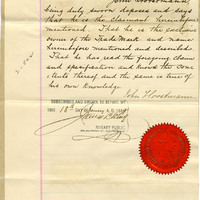 John Horstmann
being duly sworn deposes and says
that he is the claimant hereinbefore
mentioned. That he is the exclusive
owner of the Trade Mark and name
hereinbefore mentioned and described
That he has read the foregoing claim
and specification and knows the con-
tents thereof and the same is true of
his own knowledge.
John Horstmann
SUBSCRIBED AND SWORN TO BEFORE ME
THIS 18th DAY January A.D. 188
NOTARY PUBLIC